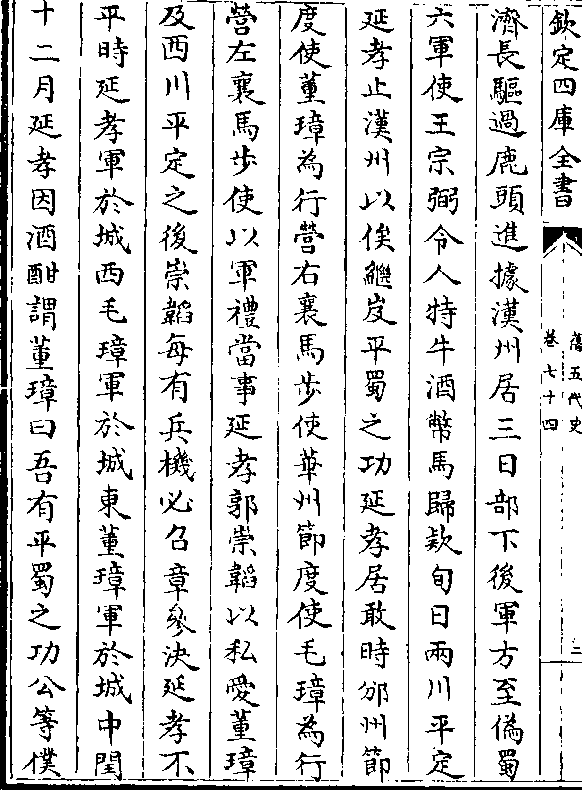 欽定四庫全書
舊五代史
卷七十四
三
濟長驅過鹿頭進據漢州居三日部下後軍方至偽蜀
六軍使王宗弼令人持牛酒幣馬歸欵旬日兩川平定
延孝止漢州以俟繼岌平蜀之功延孝居敢時邠州節
度使董璋為行營右襄馬步使華州節度使毛璋為行
營左襄馬步使以軍禮當事延孝郭崇韜以私愛董璋
及西川平定之後崇韜每有兵機必召章參決延孝不
平時延孝軍於城西毛璋軍於城東董璋軍於城中閏
十二月延孝因酒酣謂董璋曰吾有平蜀之功公等僕